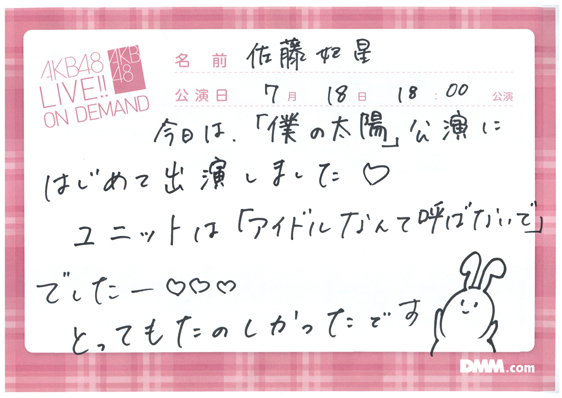 AKB48
LIVE!!
ON DEMAND
AKB
48
名前 佐藤妃星
公演日 7月18日 18:00 公演
今日は、「僕の太陽」公演に
はじめて出演しました♡
ユニットは「アイドルなんて呼ばないで」
でしたー♡♡♡
とってもたのしかったです
DMM.com